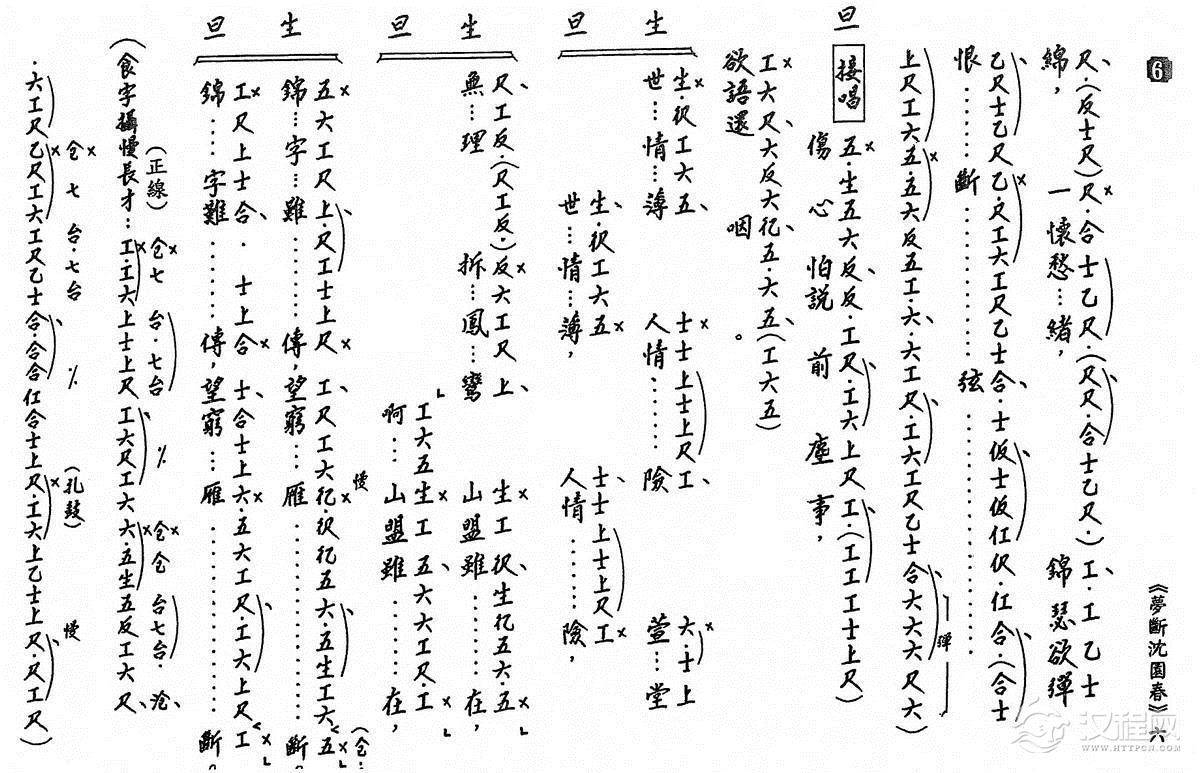 6
《夢斷沈園春》六
尺、(反士尺)尺·合士乙尺·(尺尺·合士乙尺·)工、工乙士
綿, 一懷愁…緒, 錦瑟欲彈
乙尺士乙尺乙·尺工六工尺乙士合·士仮士仮仜伬·仜合·(合士
恨………斷…………弦…………
上尺工六五·五六反五工·六·六工尺工六工尺乙士合六六六尺六
彈
旦 接唱 五·生五六反反·工尺·工六上尺工·(工工工士上尺)
傷心怕說前塵事,
工六尺六反六五·六五(工六五)
欲語還 咽。
生 生·伬工六五 士士上士上尺工 六·士上
世…情…薄 人情………險 萱…堂
旦 生·伬工六五 士士上士上尺工
世…情…薄, 人情………險,
生 尺工反·(尺工反·)反六工尺上 生工伬生五六·五
無…理 拆…鳳…鸞 山盟雖……在,
旦 工六五生工五六六工尺·工
啊…山盟雖……在,
生 五六工尺上·尺工士上尺 工尺工六·伬五六·五生工六五 慢
錦…字…難……傳,望窮…雁…………斷。
旦 工尺上士合·士上合 士合士上六·五六工尺工六上尺工
錦…字難……傳,望窮…雁…………斷。
(正線) 仓七台·七台 ⁒ 仓仓台七台·沧
(食字攝慢長才…工·工六上士上尺工六尺工六六五生五反工六尺
仓七台·七台 ⁒ (孔鼓) 慢
·六工尺乙尺工六工尺乙士合·合合仜合士上尺·工六上乙士上尺·尺工尺)
汉程网
WWW.HTTPCN.COM